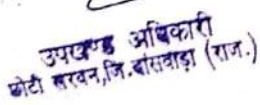 उपखण्ड अधिकारी
छोटी सरवन,जि.बांसवाड़ा (राज.)